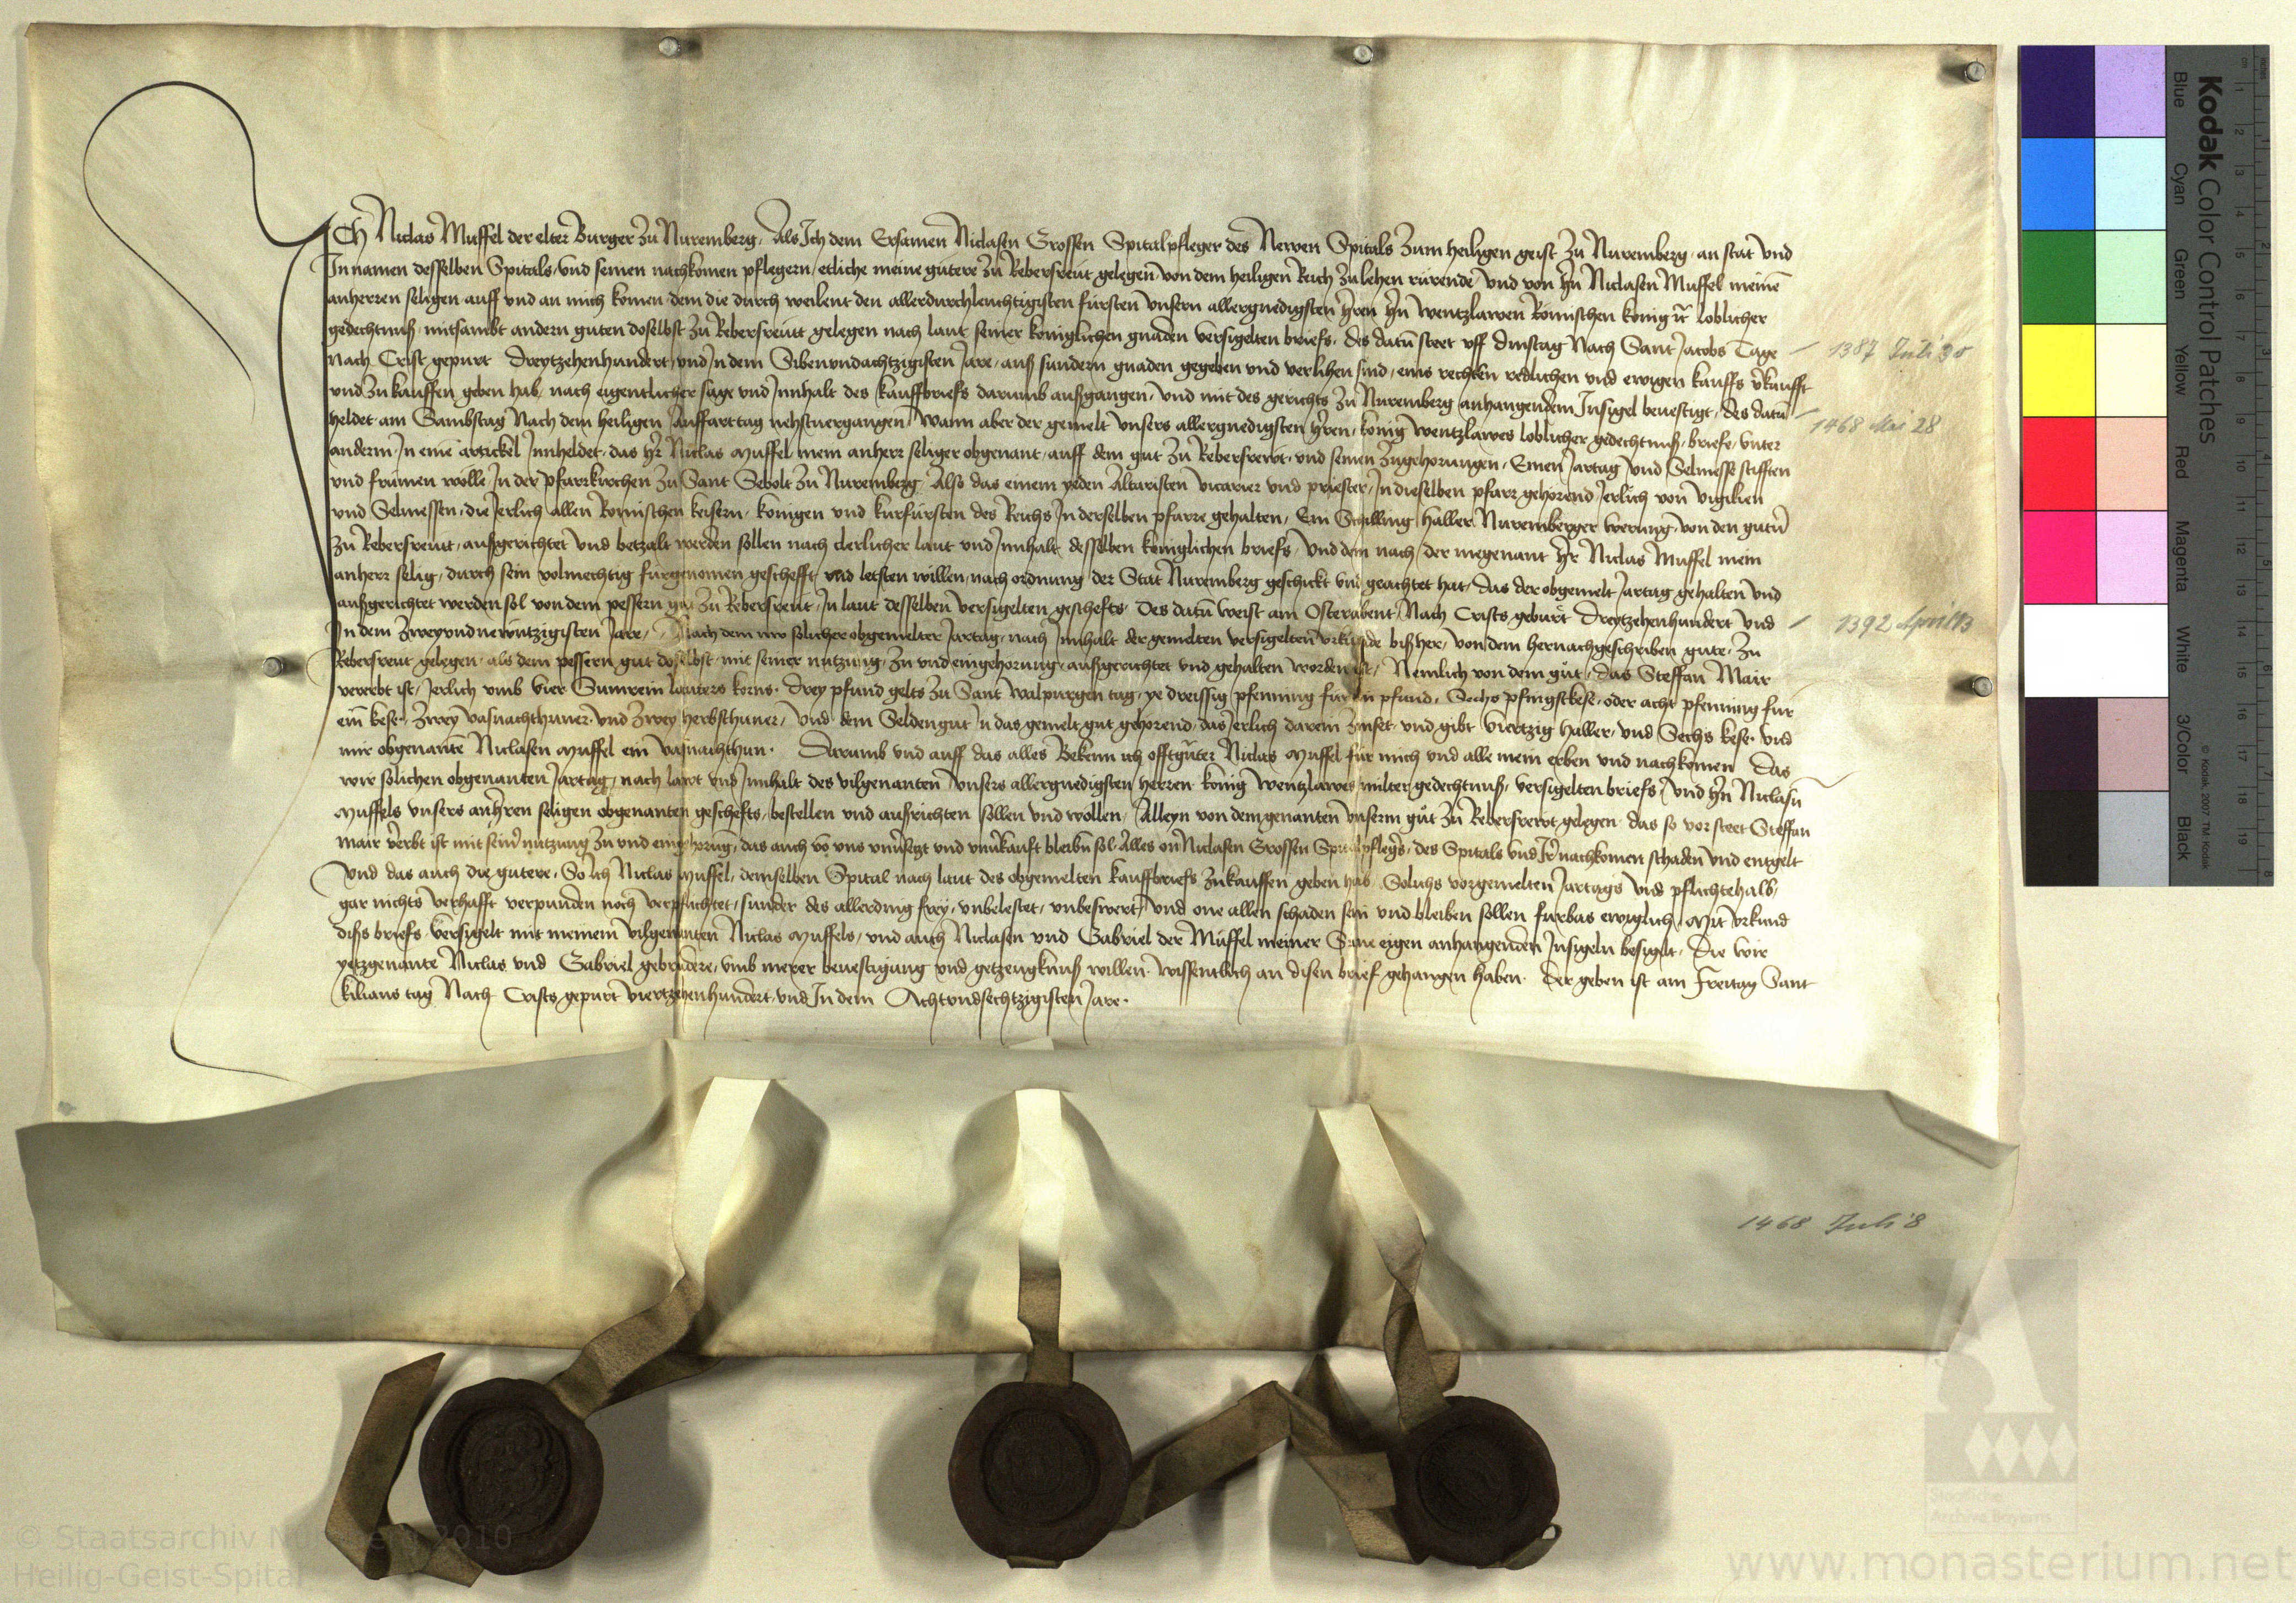 Ich Niclas Muffel der elter Burger zu Nuremberg, Als Ich dem Ersamen Niclasen Grossen Spitalpfleger des Newen Spitals zum heiligen geist zu Nuremberg an stat und
In namen desselben Spitals und seinen nachkomen pflegern etliche meine gutere zu Rebersreut gelegen von dem heiligen Reich zu lehen rurende und von hern Niclasen Muffel meinē
anherren seligen auff und an mich komen dem die durch weilent den allerdurchleuchtigisten fursten unsern allergnedigsten hren hrn wentzlawen Romischen konig loblicher
gedechtnuß mitsambt andern guten doselbst zu Rebersreutt gelegen nach laut seiner koniglichen gnaden versigelten briefs des datū steet uff dinstag Nach Sant Jacobs Tage
nach Crist gepurt dreytzehenhundert und In dem Sibenundachtzigisten Jare auß sundern gnaden gegeben und verlihen sind eins rechten redlichen und ewigen kauffs vkaufft
1387 Juli 30
und zu kauffen geben hab nach eigentlicher sage und Innhalt des kauffbriefs darumb außgangen und mit des gerichts zu Nuremberg anhangendem Insigel bevestigt des datū
heldet am Sambstag Nach dem heiligen Auffarttag nehstvergangen wann aber der gemelt unsers allergnedigsten hren konig wentzlawes loblicher gedechtnuß briefe unter
1468 Mai 28
anderm In eine artickel Innheldet das hr Niclas Muffel mein anherr seliger obgenant auff dem gut zu Rebersrewt und seinen zugehorungen Einen Jartag und Selmesse stifften
und frumen wolle In der pfarrkirchen zu Sant Sebolt zu Nuremberg Also das einem yeden Altaristen vicarier und priester In dieselben pfarr gehorend Jerlich von vigilien
und Selmessen die Jerlich allen Romischen keisern konigen und kurfursten des Reichs In derselben pfarre gehalten Ein Schilling haller Nuremberger werung von den gutn
zu Rebersreut außgerichtet und betzalt werden sollen nach clerlicher laut und Innhalt desselben koniglichen briefs und dem nach der megenant hr Niclas Muffel mein
anherr selig durch sein volmechtig furgenomen gescheft und letsten willen nach ordnung der Stat Nuremberg geschickt und geachtet hat das der obgemelt Jartag gehalten und
außgerichtet werden sol von dem pessern gut zu Rebersreut In laut desselben versigelten geschefts des datū weist am Osterabent Nach Crists geburt dreytzehenhundert und
In dem zweyundnewntzigisten Jare Nach dem nw solicher obgemelter Jartag nach Innhalt der gemelten versigelten urkunde bißher von dem hernachgeschriben gute zu
1392 April 13
Rebersreut gelegen als dem pessern gut doselbst mit seiner nutzung zu und eingehorung außgerichtet und gehalten worden ist Nemlich von dem gut das Steffan Mair
vererbt ist Jerlich umb vier Sumrein lauters korns drey pfund gelts zu Sant walpurgen tag ye dreissig pfenning fur ein pfund Sechs pfingstkese oder acht pfenning fur
ein kese zwey vasnachthuner und zwey herbsthuner und dem Seldengut In das gemelt gut gehorend das Jerlich darein zinset und gibt viertzig haller und Sechs kese und
mir obgenantē Niclasen Muffel ein vasnachthun Darumb und auff das alles Bekenn ich offtgnter Niclas Muffel fur mich und alle mein erben und nachkomen das
wir solichen obgenanten Jartag nach lawt und Innhalt des vilgenanten unsers allergnedigisten herren konig wentzlawes milter gedechtnuß versigelten briefs und hrn Niclasn
Muffels unsers anhren seligen obgenanten geschefts bestellen und außrichten sollen und wollen Alleyn von dem genanten unserm gut zu Rebersrewt gelegen das so vor steet Steffan
mair vererbt ist mit seinr nutzung zu und eingehorūg das auch vō uns unvsetzt und unvkauft bleibn sol Alles on Niclasen Grossen Spitalpflegrs des Spitals und Ir nachkomen schaden und entgelt
Und das auch die gutere So Ich Niclas Muffel demselben Spital nach laut des obgemelten kauffbriefs zukauffen geben hab Solichs vorgemelten Jartags und pflichtehalb
gar nichts verhafft verpunden noch verpflichtet sunder des allerding frey unbelestet unbeswert und one allen schaden sein und bleiben sollen furbas ewiglich Mit urkund
diss briefs versigelt mit meinem vilgenanten Niclas Muffels und auch Niclasen und Gabriel der Muffel meiner Sune eigen anhangenden Insigeln besigelt die wir
yetzgenante Niclas und Gabriel gebrudere umb merer bevestigung und getzeugknuß willen wissentlich an disen brief gehangen haben der geben ist am Freitag Sant
kilians tag Nach Crists gepurt viertzehenhundert und In dem Achtundsechtzigisten Jare
1468 Juli 8
Kodak Color Control Patches
Blue Cyan Green Yellow Red Magenta White 3/Color Black
© Kodak, 2007 TM: Kodak
© Staatsarchiv Nürnberg 2010
Heilig-Geist-Spital
Staatliche
Archive Bayerns
www.monasterium.net